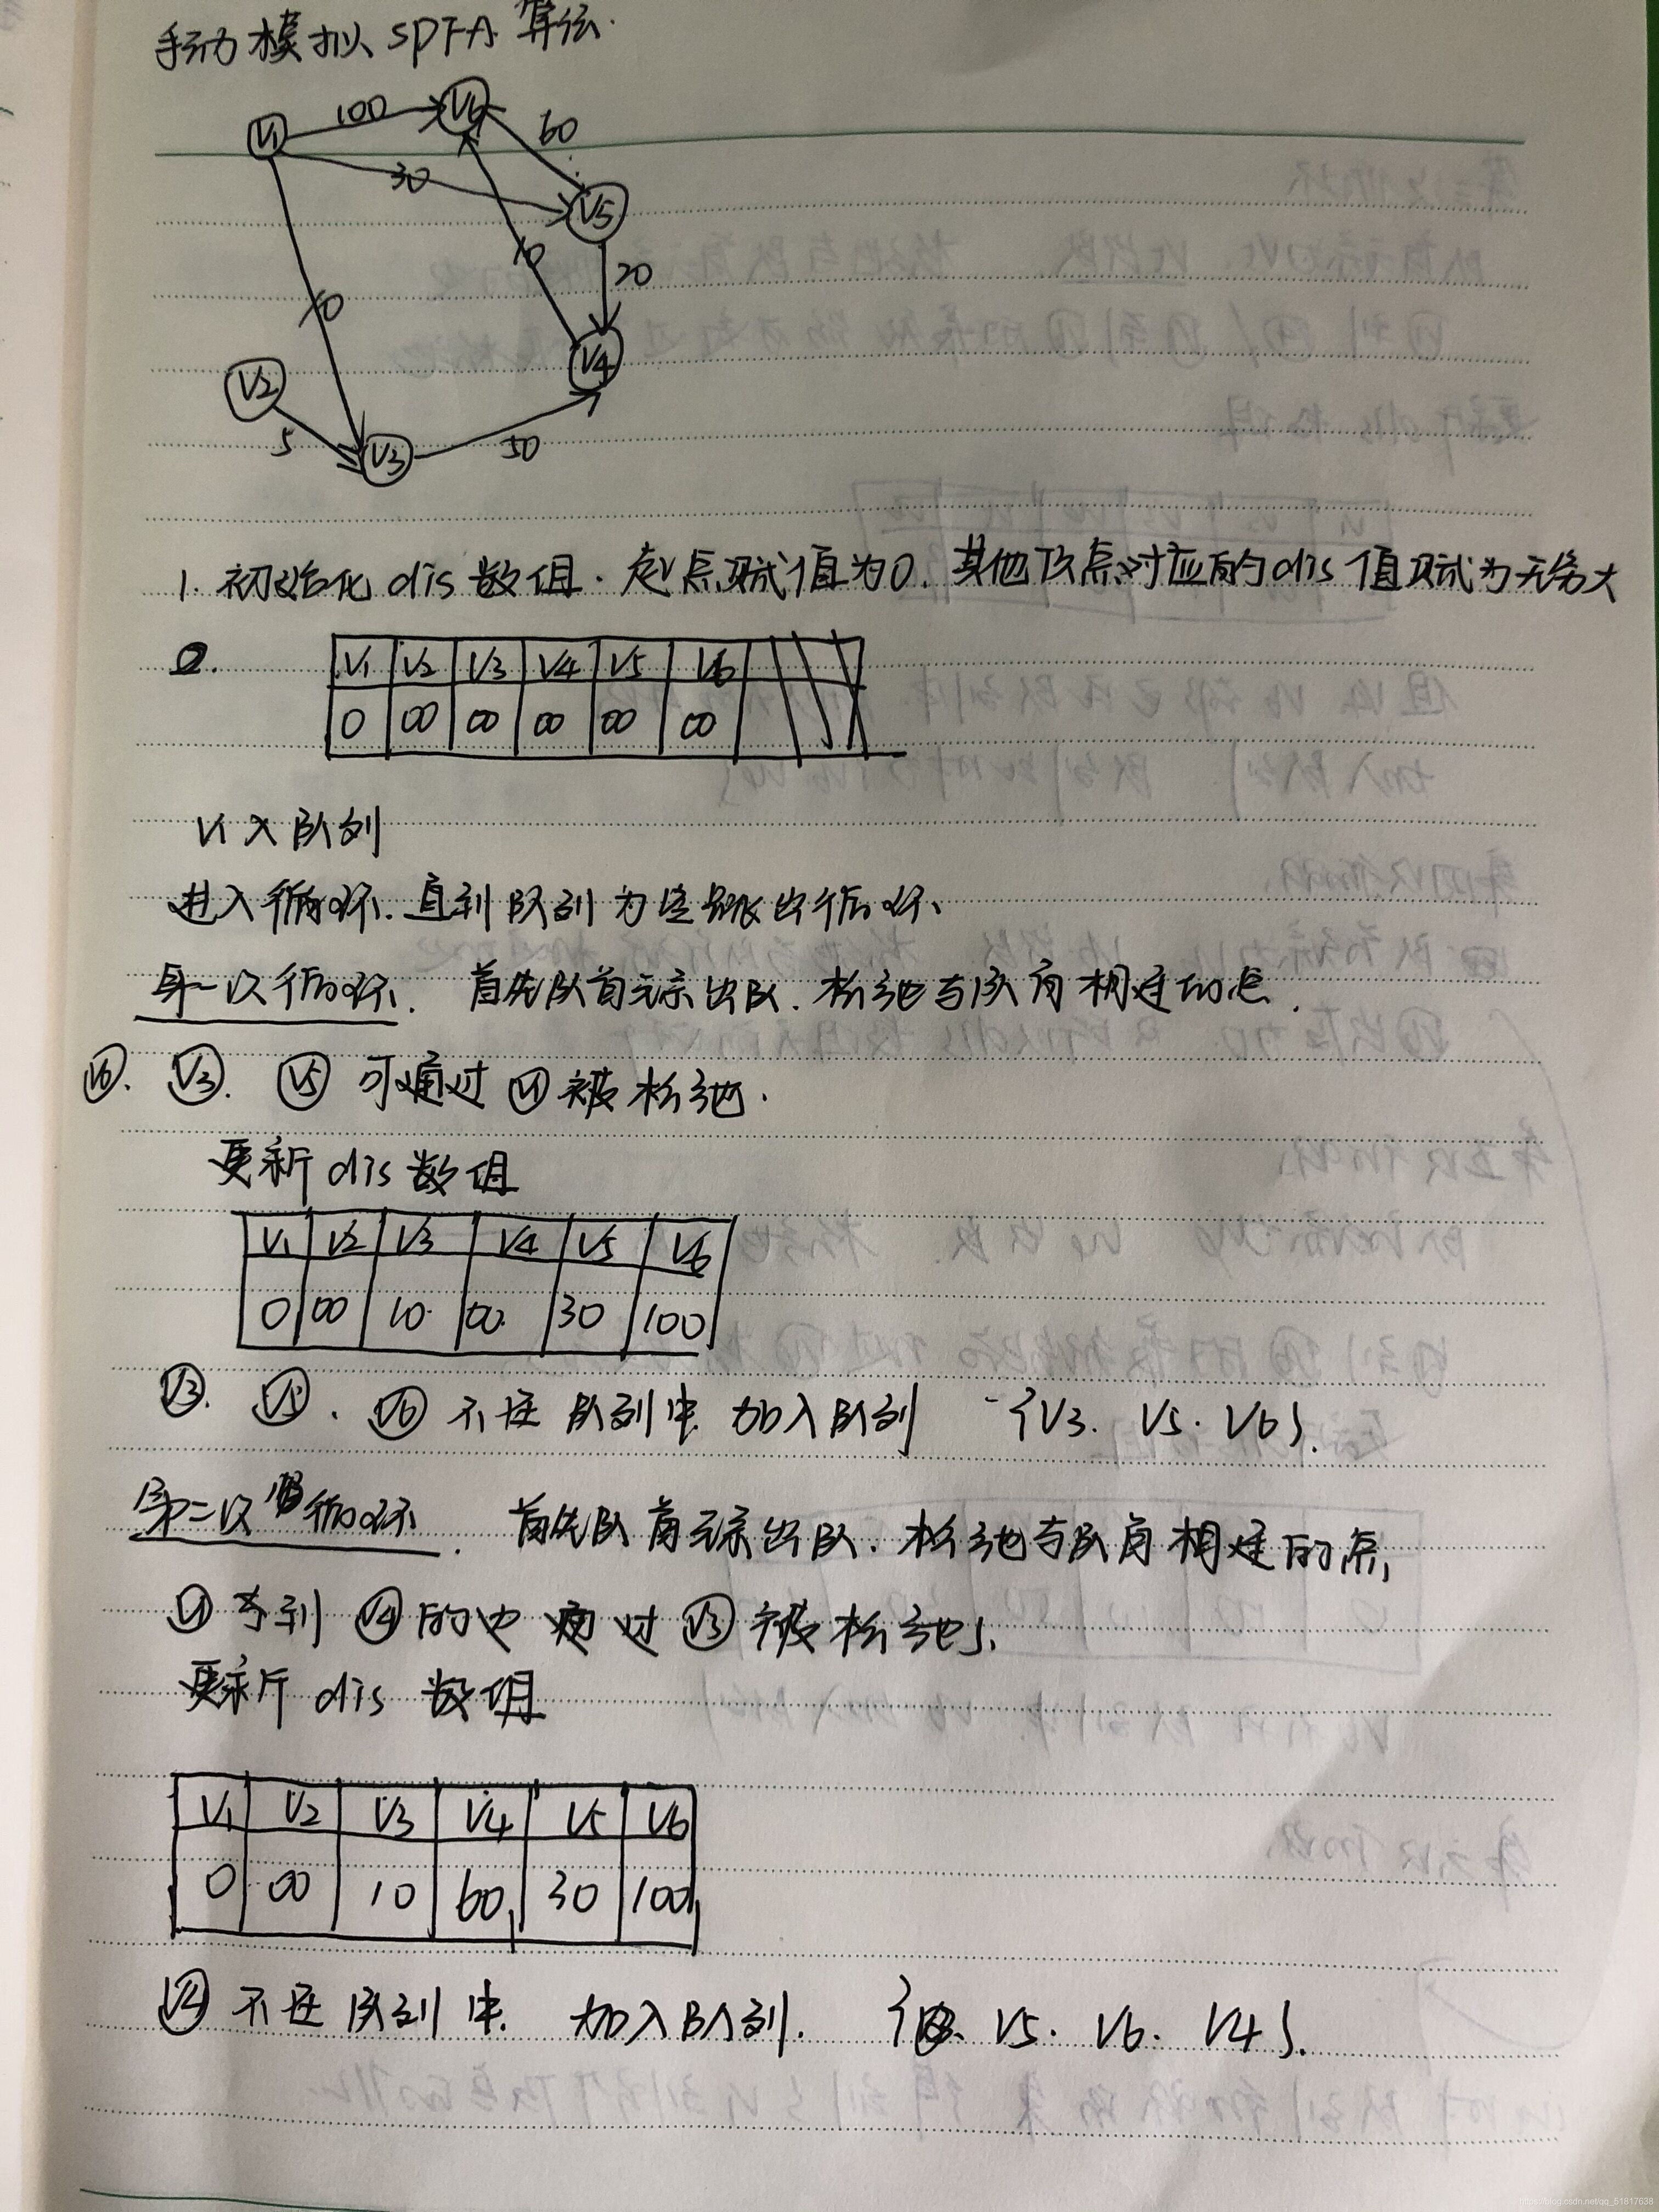 手动模拟 SPFA 算法.
V1 100 V6 60
30 V5
10 20
10 V4
V2
5 V3 50
1. 初始化 dis 数组. 起点赋值为0. 其他顶点对应的 dis 值赋为无穷大
2.
V1 V2 V3 V4 V5 V6
0 ∞ ∞ ∞ ∞ ∞
V1 入队列
进入循环. 直到队列为空跳出循环、
第一次循环. 首先队首元素出队. 松弛与队首相连的点.
V6. V3. V5 可通过 V1 被松弛.
更新 dis 数组
V1 V2 V3 V4 V5 V6
0 ∞ 10 ∞ 30 100
V3. V5. V6 不在队列中 加入队列 {V3. V5. V6}.
第二次循环. 首先队首元素出队. 松弛与队首相连的点,
V1 到 V4 的边通过 V3 被松弛.
更新 dis 数组
V1 V2 V3 V4 V5 V6
0 ∞ 10 60 30 100
V4 不在队列中. 加入队列. { V5. V6. V4}.
https://blog.csdn.net/qq_51817638